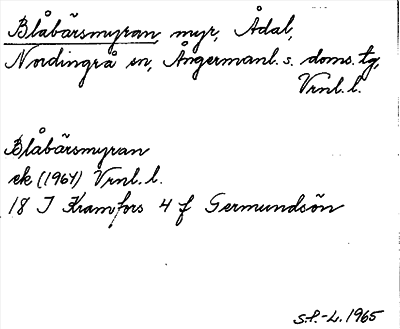 Blåbärsmyran, myr, Ådal,
Nordingrå sn, Ångermanl. s. doms. tg,
Vrnl. l.
Blåbärsmyran
ek (1964) Vrnl. l.
18 J Kramfors 4 f Germundsön
S.P.-L. 1965